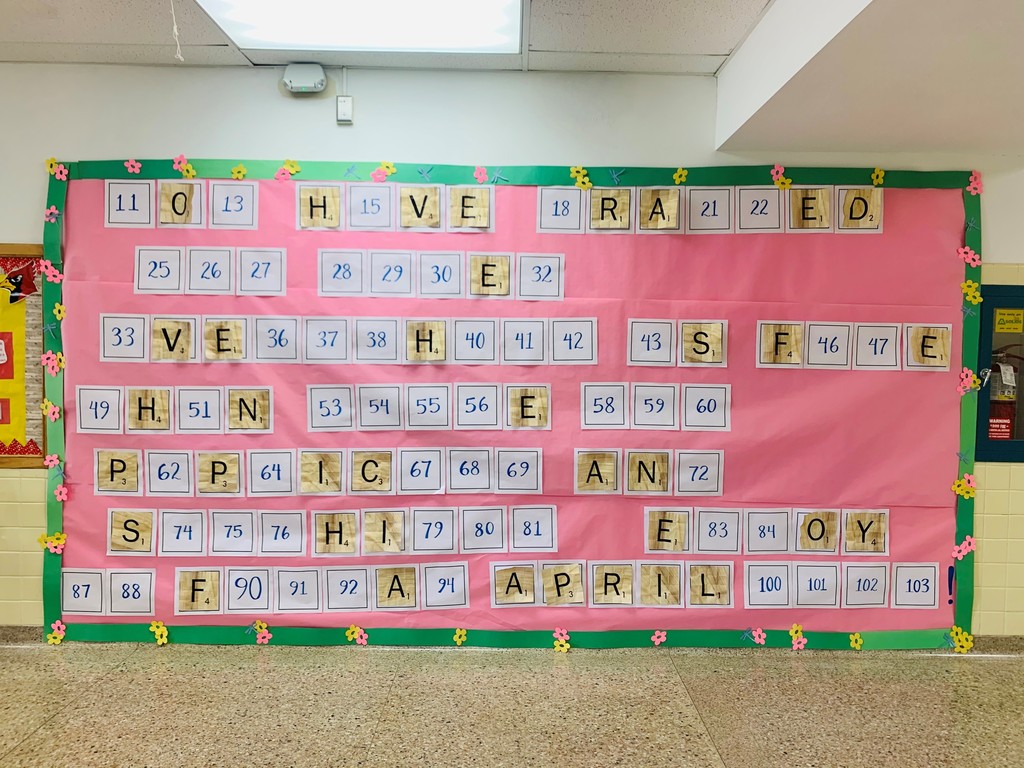 11 O 13 H 15 V E 18 R A 21 22 E D
25 26 27 28 29 30 E 32
33 V E 36 37 38 H 40 41 42 43 S F 46 47 E
49 H 51 N 53 54 55 56 E 58 59 60
P 62 P 64 I C 67 68 69 A N 72
S 74 75 76 H I 79 80 81 E 83 84 O Y
87 88 F 90 91 92 A 94 A P R I L 100 101 102 103 !